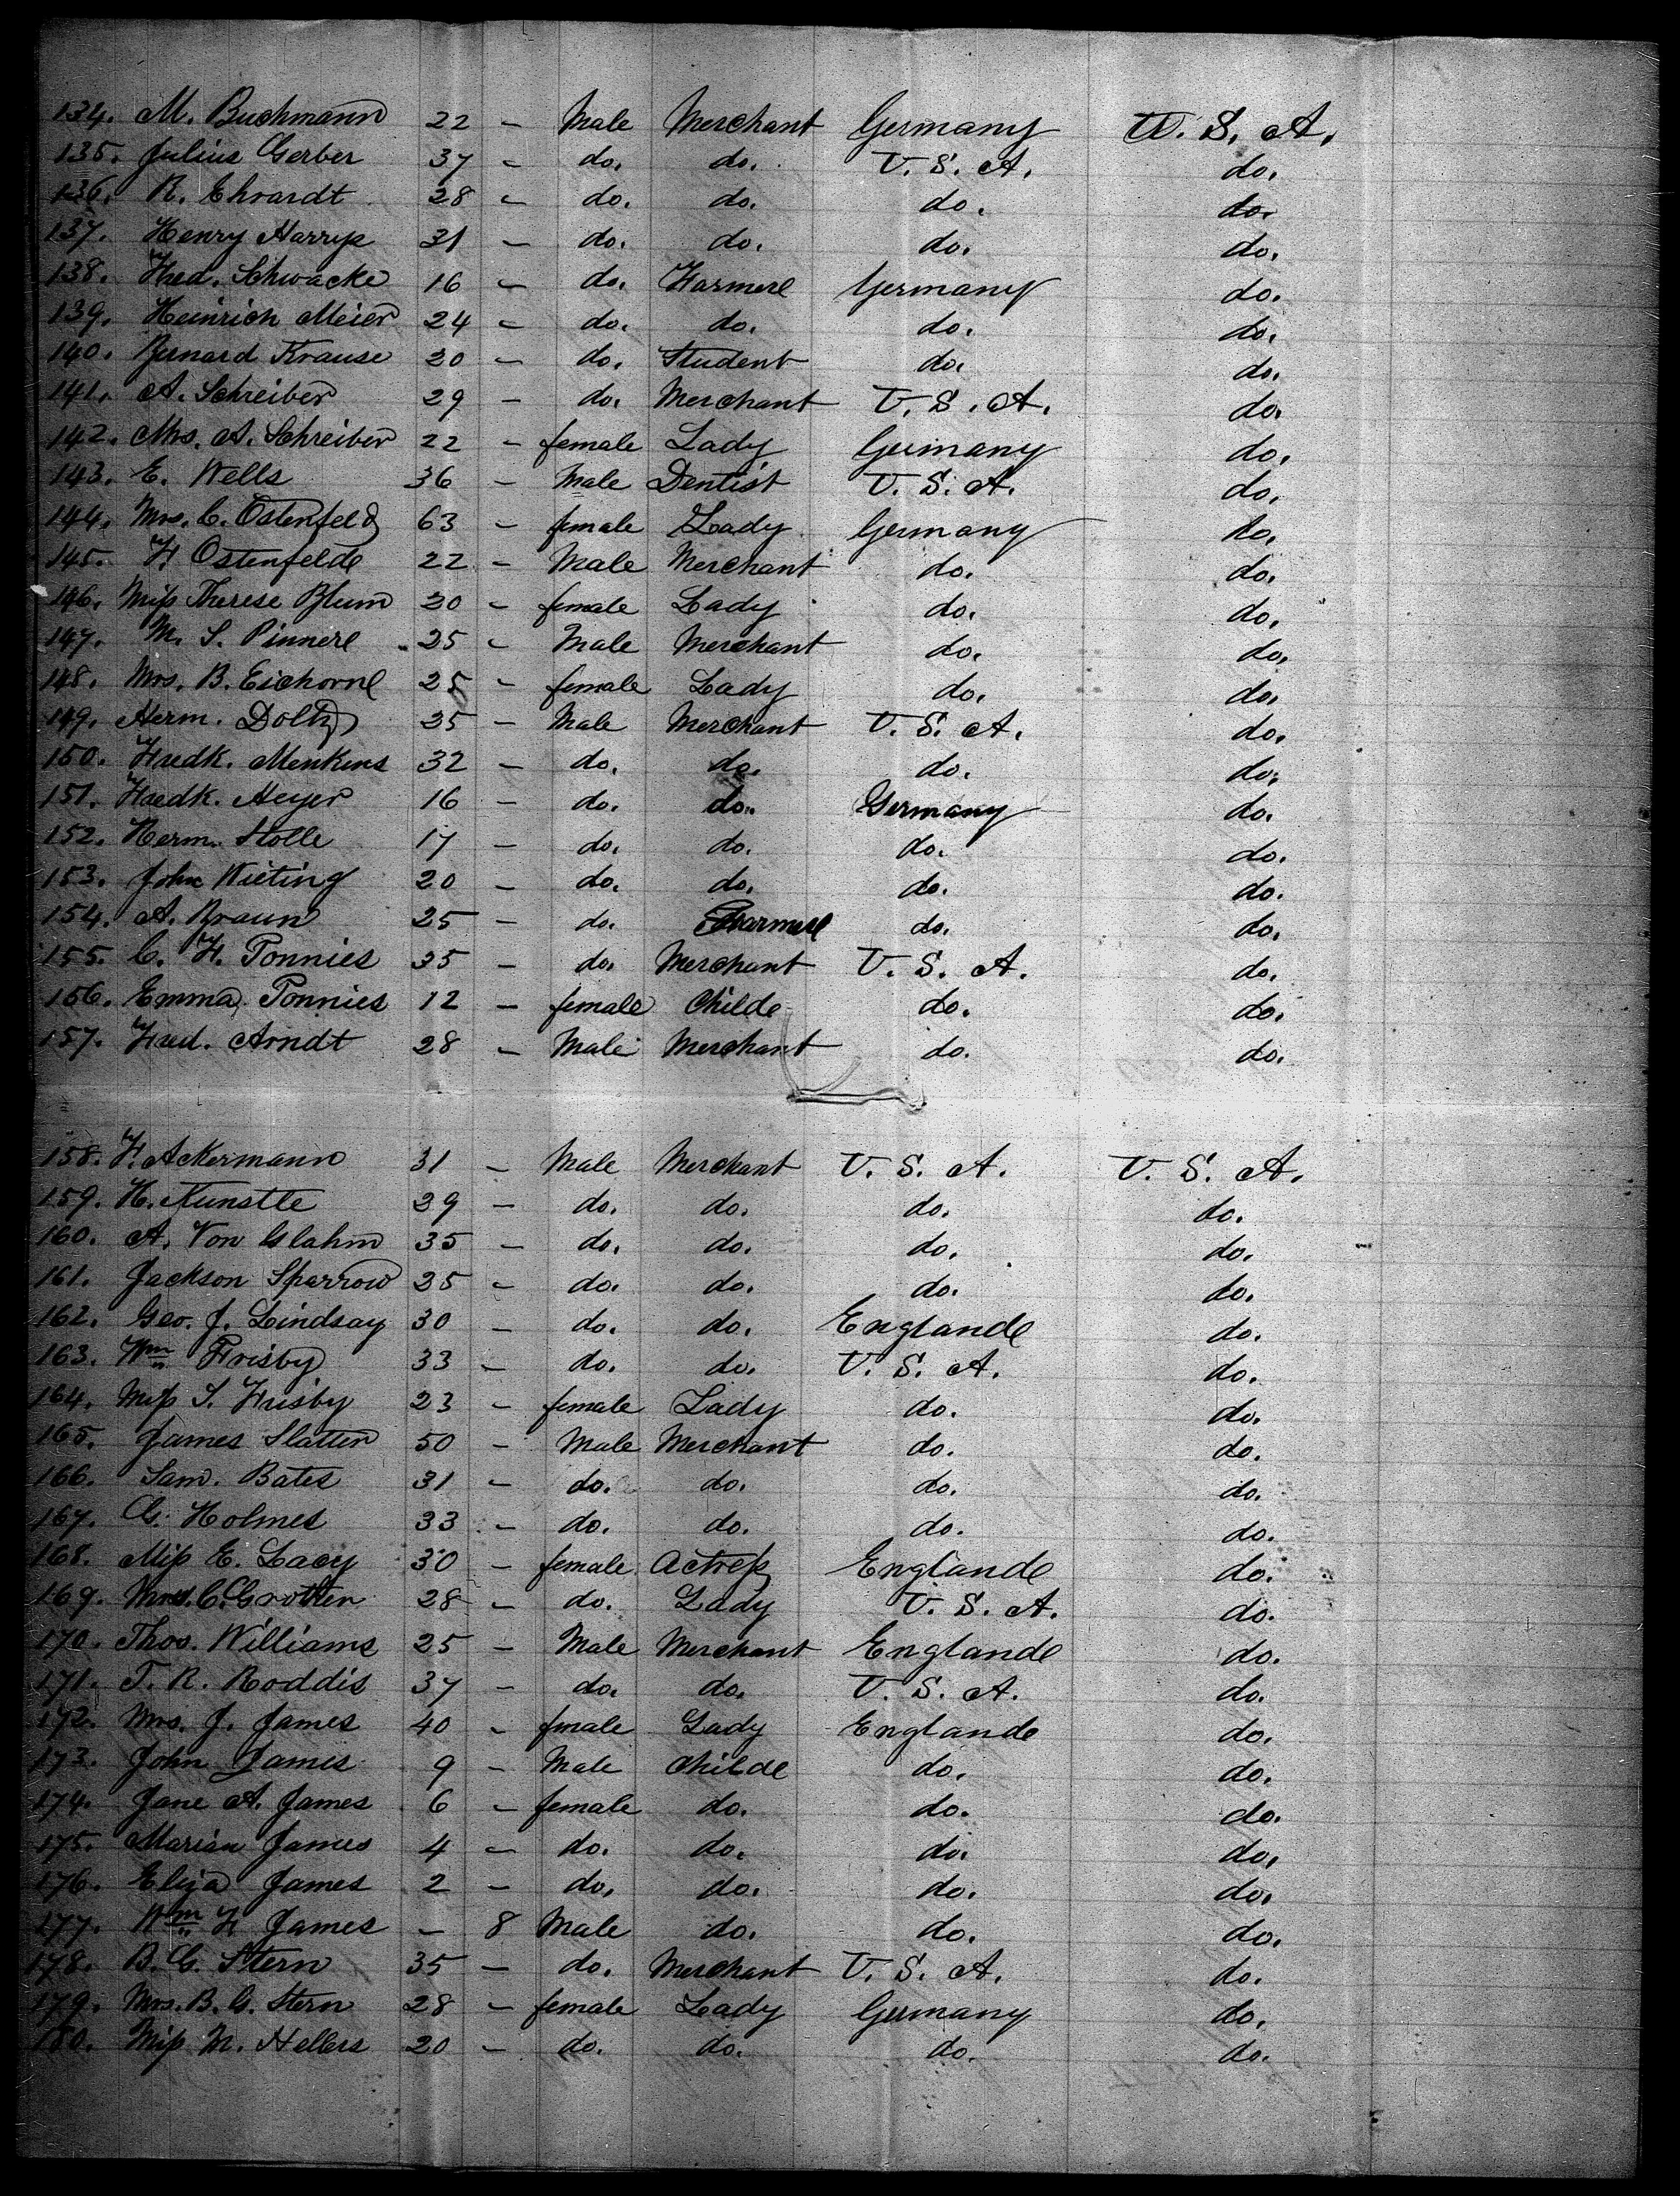 134. M. Buchmann 22 - Male Merchant Germany U. S. A.
135. Julius Gerber 37 - do. do. U. S. A. do.
136. R. Ehrardt 28 - do. do. do. do.
137. Henry Harrys 31 - do. do. do. do.
138. Fred. Schwacke 16 - do. Farmer Germany do.
139. Heinrich Meier 24 - do. do. do. do.
140. Bernard Krause 20 - do. Student do. do.
141. A. Schreiber 29 - do. Merchant U. S. A. do.
142. Mrs. A. Schreiber 22 - female Lady Germany do.
143. E. Wells 36 - Male Dentist U. S. A. do.
144. Mrs. C. Ostenfeld 63 - female Lady Germany do.
145. F. Ostenfeld 22 - Male Merchant do. do.
146. Miss Therese Blum 20 - female Lady do. do.
147. M. S. Pinner 25 - Male Merchant do. do.
148. Mrs. B. Eichorn 25 - female Lady do. do.
149. Herm. Doltz 35 - Male Merchant U. S. A. do.
150. Fredk. Menkens 32 - do. do. do. do.
151. Fredk. Heyer 16 - do. do. Germany do.
152. Herm. Stolle 17 - do. do. do. do.
153. John Wieting 20 - do. do. do. do.
154. A. Braun 25 - do. Farmer do. do.
155. C. F. Tonnies 35 - do. Merchant U. S. A. do.
156. Emma Tonnies 12 - female Child do. do.
157. Fred. Arndt 28 - Male Merchant do. do.
158. F. Ackermann 31 - Male Merchant U. S. A. U. S. A.
159. H. Kunstle 29 - do. do. do. do.
160. A. Von Glahn 35 - do. do. do. do.
161. Jackson Sparrow 25 - do. do. do. do.
162. Geo. J. Lindsay 30 - do. do. England do.
163. Wm Frisby 33 - do. do. U. S. A. do.
164. Miss S. Frisby 23 - female Lady do. do.
165. James Slatter 50 - Male Merchant do. do.
166. Sam. Bates 31 - do. do. do. do.
167. C. Holmes 33 - do. do. do. do.
168. Miss E. Lacy 30 - female Actress England do.
169. Mrs. C. Grotten 28 - do. Lady U. S. A. do.
170. Thos. Williams 25 - Male Merchant England do.
171. T. R. Roddis 37 - do. do. U. S. A. do.
172. Mrs. J. James 40 - female Lady England do.
173. John James 9 - Male Child do. do.
174. Jane A. James 6 - female do. do. do.
175. Marian James 4 - do. do. do. do.
176. Eliza James 2 - do. do. do. do.
177. Wm F James - 8 Male do. do. do.
178. B. G. Stern 35 - do. Merchant U. S. A. do.
179. Mrs. B. G. Stern 28 - female Lady Germany do.
180. Miss M. Hellers 20 - do. do. do. do.